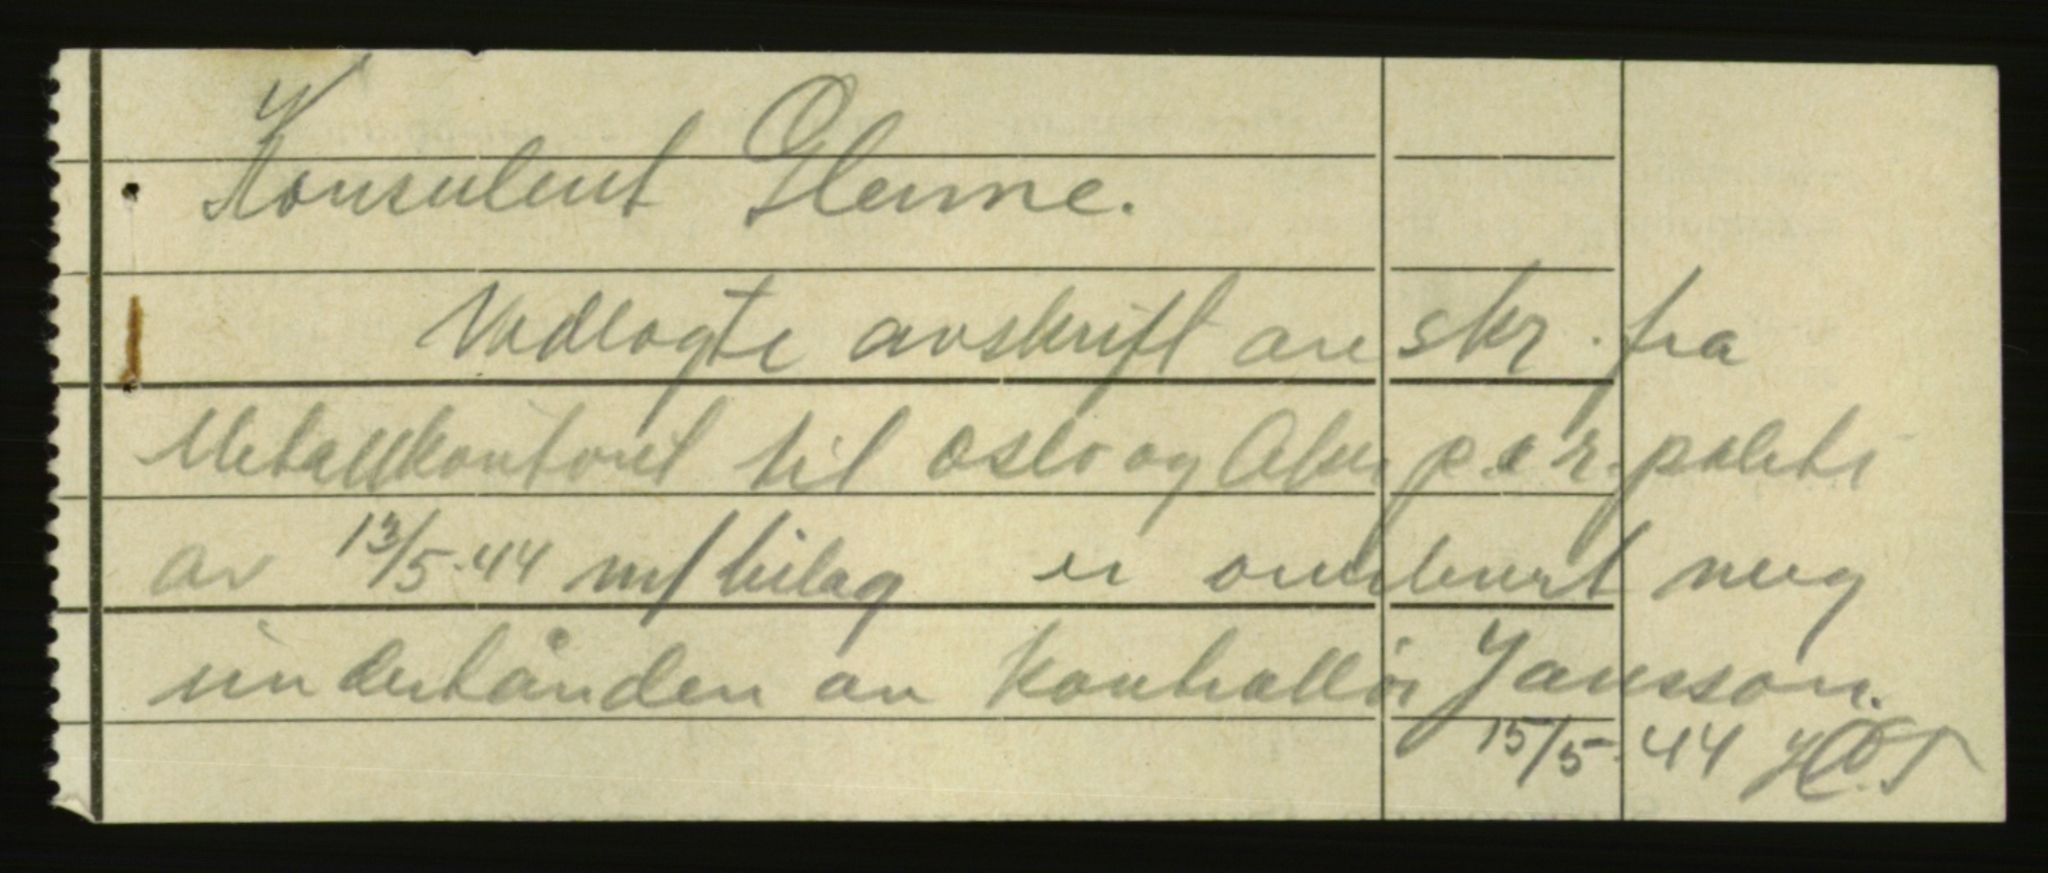 Konsulent Glenne.
Vedlagte avskrift av skr. fra
Metallkontoret til Oslo og Aker p.o.r. politi
av 13/5-44 m/bilag er overlevert meg
underhånden av kontrollør Jansson.
15/5-44